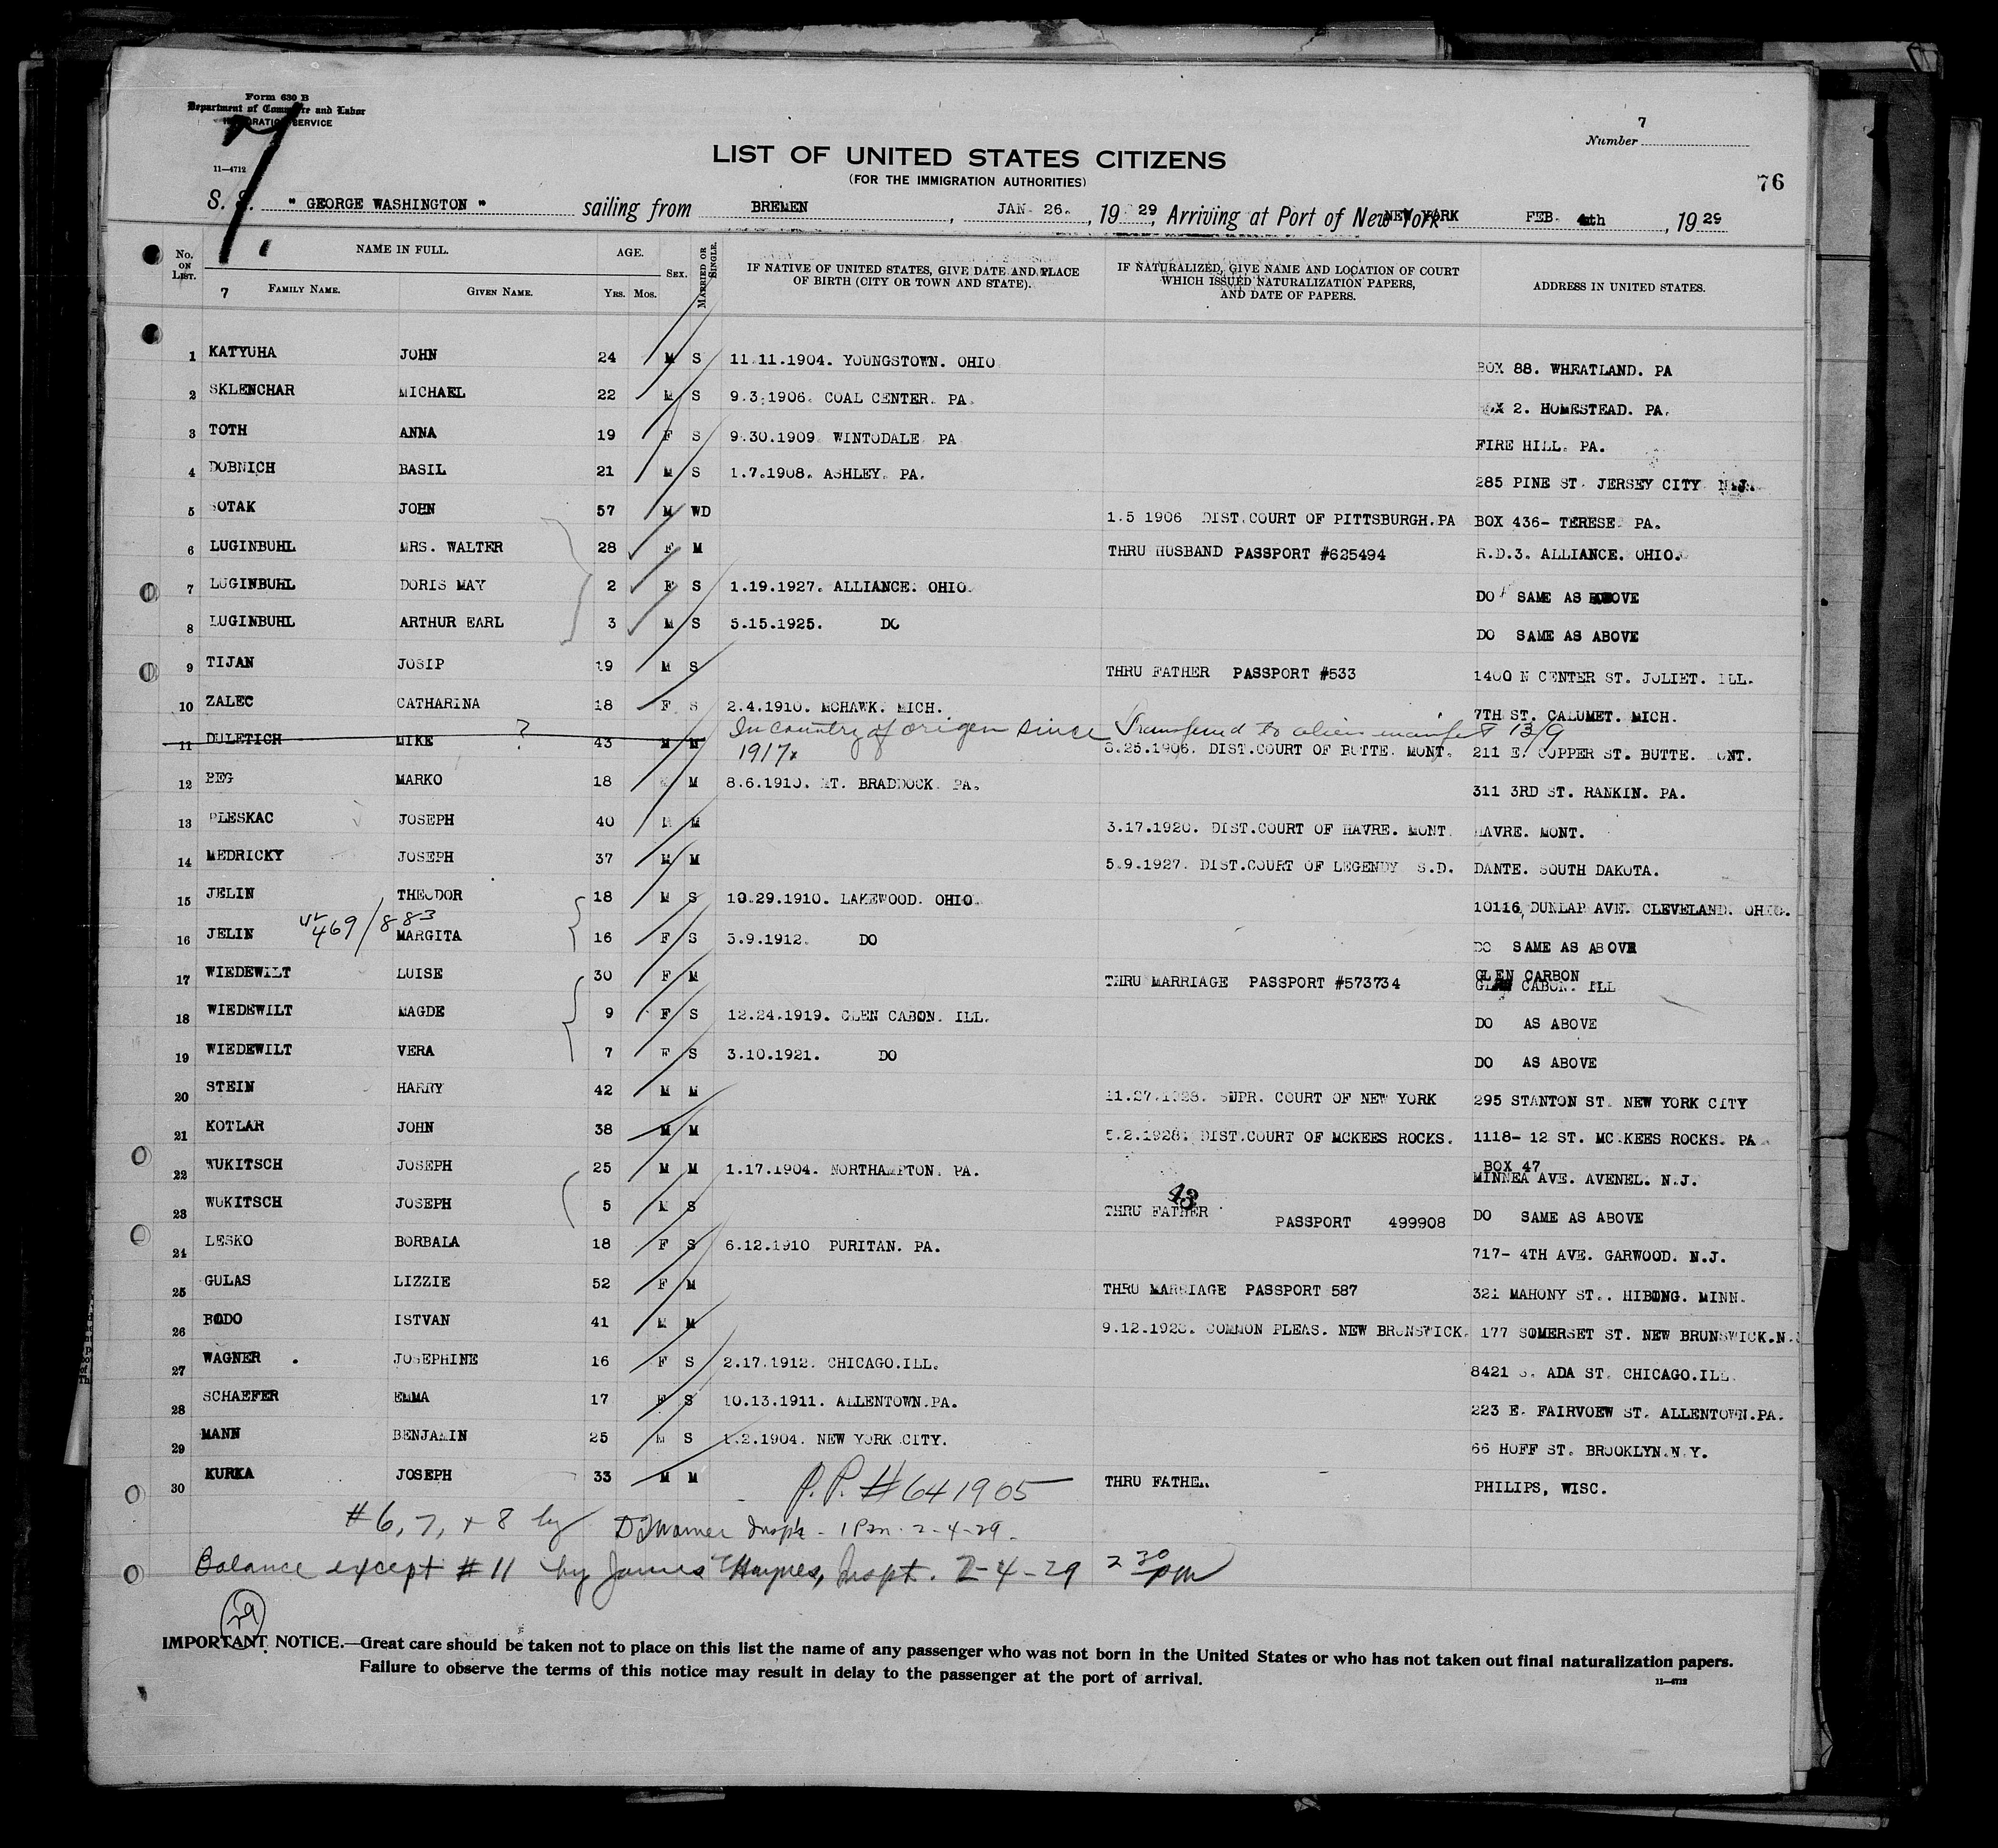 Form 630 B
Department of Commerce and Labor
IMMIGRATION SERVICE
11—4712
7
Number 7
LIST OF UNITED STATES CITIZENS
(FOR THE IMMIGRATION AUTHORITIES)
76
S. S. " GEORGE WASHINGTON " sailing from BREMEN, JAN 26. , 19 29, Arriving at Port of New York NEW YORK FEB. 4th , 19 29
No. ON LIST. NAME IN FULL. AGE. SEX. MARRIED OR SINGLE. IF NATIVE OF UNITED STATES, GIVE DATE AND PLACE OF BIRTH (CITY OR TOWN AND STATE). IF NATURALIZED, GIVE NAME AND LOCATION OF COURT WHICH ISSUED NATURALIZATION PAPERS, AND DATE OF PAPERS. ADDRESS IN UNITED STATES.
7 FAMILY NAME. GIVEN NAME. YRS. MOS.
1 KATYUHA JOHN 24 M S 11.11.1904. YOUNGSTOWN. OHIO BOX 88. WHEATLAND. PA
2 SKLENCHAR MICHAEL 22 M S 9.3.1906. COAL CENTER. PA. BOX 2. HOMESTEAD. PA.
3 TOTH ANNA 19 F S 9.30.1909. WINTODALE PA FIRE HILL. PA.
4 DOBNICH BASIL 21 M S 1.7.1908. ASHLEY. PA. 285 PINE ST. JERSEY CITY N.J.
5 SOTAK JOHN 57 M WD 1.5 1906 DIST.COURT OF PITTSBURGH.PA BOX 436- TERESE. PA.
6 LUGINBUHL MRS. WALTER 28 F M THRU HUSBAND PASSPORT #625494 R.D.3. ALLIANCE. OHIO.
7 LUGINBUHL DORIS MAY 2 F S 1.19.1927. ALLIANCE. OHIO. DO SAME AS ABOVE
8 LUGINBUHL ARTHUR EARL 3 M S 5.15.1925. DO DO SAME AS ABOVE
9 TIJAN JOSIP 19 M S THRU FATHER PASSPORT #533 1400 N CENTER ST. JOLIET. ILL.
10 ZALEC CATHARINA 18 F S 2.4.1910. MOHAWK. MICH. 7TH ST. CALUMET. MICH.
In country of origen since 1917 Transferred to alien manifest 13/9
11 DULETICH MIKE ? 43 M M .25.1906. DIST.COURT OF BUTTE. MONT. 211 E. COPPER ST. BUTTE. ONT.
12 BEG MARKO 18 M M 8.6.1910. MT. BRADDOCK. PA. 311 3RD ST. RANKIN. PA.
13 PLESKAC JOSEPH 40 M M 3.17.1920. DIST.COURT OF HAVRE. MONT. HAVRE. MONT.
14 MEDRICKY JOSEPH 37 M M 5.9.1927. DIST.COURT OF LEGENDY S.D. DANTE. SOUTH DAKOTA.
15 JELIN THEODOR 18 M S 10.29.1910. LAKEWOOD. OHIO. 10116 DUNLAP AVE. CLEVELAND. OHIO.
469/883
16 JELIN MARGITA 16 F S 3.9.1912. DO DO SAME AS ABOVE
17 WIEDEWILT LUISE 30 F M THRU MARRIAGE PASSPORT #573734 GLEN CARBON
GLEN CABON. ILL
18 WIEDEWILT MAGDE 9 F S 12.24.1919. GLEN CABON. ILL. DO AS ABOVE
19 WIEDEWILT VERA 7 F S 3.10.1921. DO DO AS ABOVE
20 STEIN HARRY 42 M M 11.27.1928. SUPR. COURT OF NEW YORK 295 STANTON ST. NEW YORK CITY
21 KOTLAR JOHN 38 M M 5.2.1928. DIST.COURT OF MCKEES ROCKS. 1118- 12 ST. MC.KEES ROCKS. PA
22 WUKITSCH JOSEPH 25 M M 1.17.1904. NORTHAMPTON. PA. BOX 47
MINNEA AVE. AVENEL. N.J.
43
23 WUKITSCH JOSEPH 5 M S THRU FATHER PASSPORT 499908 DO SAME AS ABOVE
24 LESKO BORBALA 18 F S 6.12.1910 PURITAN. PA. 717- 4TH AVE. GARWOOD. N.J.
25 GULAS LIZZIE 52 F M THRU MARRIAGE PASSPORT 587 321 MAHONY ST.. HIBING. MINN.
26 BODO ISTVAN 41 M M COMMON PLEAS. NEW BRUNSWICK. 177 SOMERSET ST. NEW BRUNSWICK.N.J
27 WAGNER . JOSEPHINE 16 F S 2.17.1912. CHICAGO.ILL. 8421 S. ADA ST. CHICAGO.ILL
28 SCHAEFER EMMA 17 F S 10.13.1911. ALLENTOWN.PA. 223 E. FAIRVOEW ST. ALLENTOWN.PA.
29 MANN BENJAMIN 25 M S 1.2.1904. NEW YORK CITY. 66 HOFF ST. BROOKLYN.N.Y.
30 KURKA JOSEPH 33 M M P.P. #641905 THRU FATHER. PHILIPS, WISC.
#6, 7, + 8 by Warner Inspt - 1 Pm. 2-4-29.
Balance except #11 by James Haynes, Inspt. 2-4-29 2 30 PM
29
IMPORTANT NOTICE.—Great care should be taken not to place on this list the name of any passenger who was not born in the United States or who has not taken out final naturalization papers.
Failure to observe the terms of this notice may result in delay to the passenger at the port of arrival.
11—4712